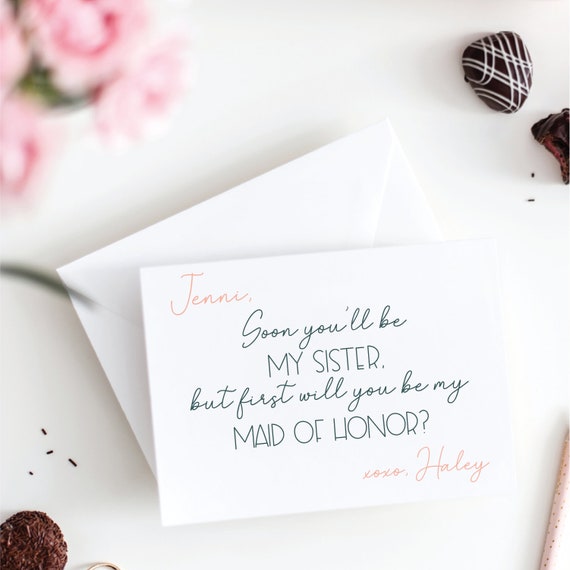 Jenni,
Soon you'll be
MY SISTER,
but first will you be my
MAID OF HONOR?
xoxo, Haley